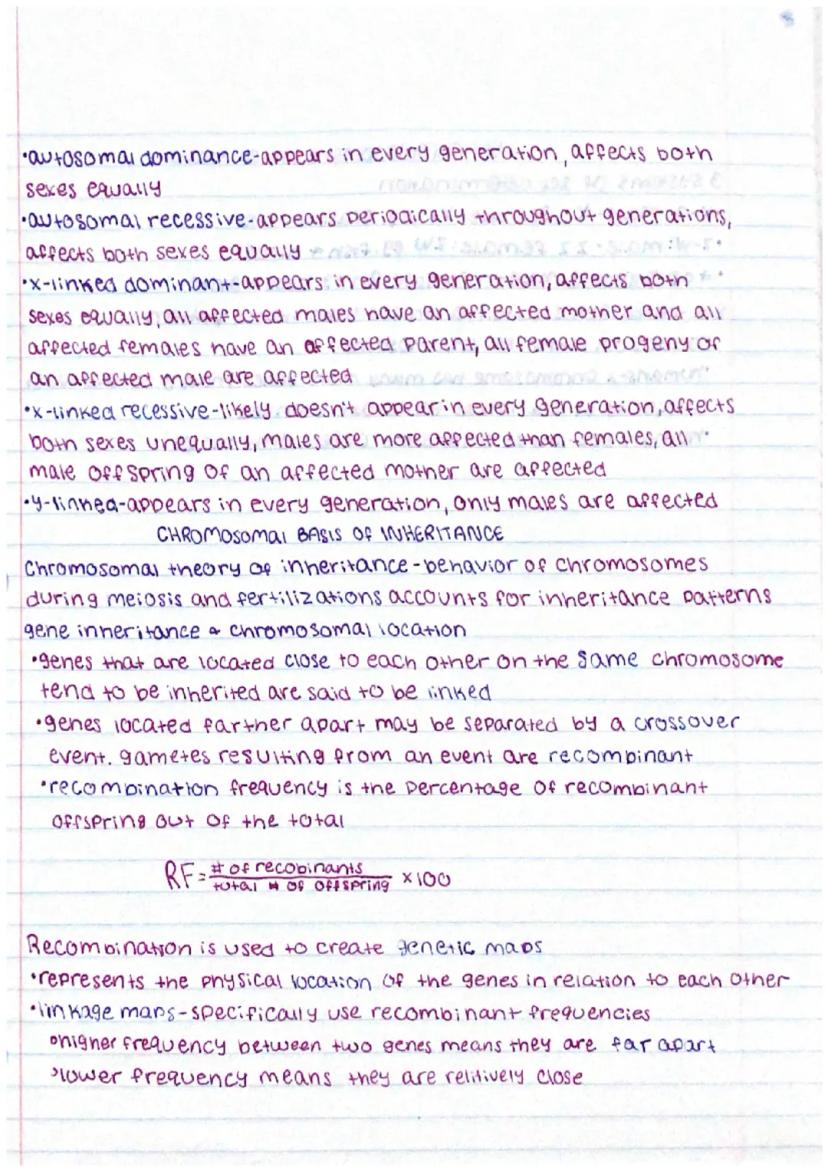 •autosomal dominance-appears in every generation, affects both
sexes equally
•autosomal recessive-appears periodically throughout generations,
affects both sexes equally
•x-linked dominant-appears in every generation, affects both
sexes equally, all affected males have an affected mother and all
affected females have an affected parent, all female progeny of
an affected male are affected
•x-linked recessive-likely doesn't appear in every generation, affects
both sexes unequally, males are more affected than females, all
male offspring of an affected mother are affected
•y-linked-appears in every generation, only males are affected
CHROMOSOMAL BASIS OF INHERITANCE
Chromosomal theory of inheritance-behavior of chromosomes
during meiosis and fertilizations accounts for inheritance patterns
gene inheritance & chromosomal location
•genes that are located close to each other on the same chromosome
tend to be inherited are said to be linked
•genes located farther apart may be separated by a crossover
event. gametes resulting from an event are recombinant
•recombination frequency is the percentage of recombinant
offspring out of the total
RF = # of recobinants / total # of offspring × 100
Recombination is used to create genetic maps
•represents the physical location of the genes in relation to each other
•linkage maps-specifically use recombinant frequencies
◦higher frequency between two genes means they are far apart
◦lower frequency means they are relitively close